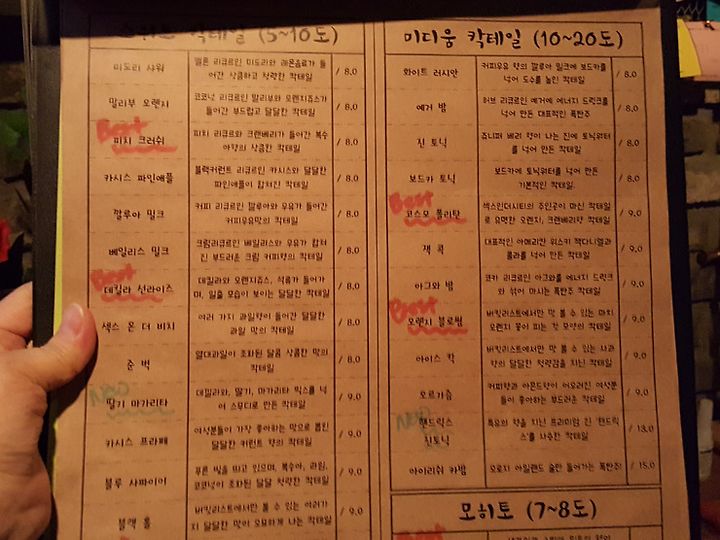 칵테일 (5~10도)
미도리 샤워
멜론 리큐르인 미도리와 레몬음료가 들
어간 상큼하고 청량한 칵테일
/ 8.0
말리부 오렌지
코코넛 리큐르인 말리부와 오렌지쥬스가
들어간 부드럽고 달달한 칵테일
/ 8.0
Best
피치 크러쉬
피치 리큐르와 크랜베리가 들어간 복숭
아향의 상큼한 칵테일
/ 8.0
카시스 파인애플
블랙커런트 리큐르인 카시스와 달달한
파인애플이 합쳐진 칵테일
/ 8.0
깔루아 밀크
커피 리큐르인 깔루아와 우유가 들어간
커피우유맛의 칵테일
/ 8.0
베일리스 밀크
크림리큐르인 베일리스와 우유가 합쳐
진 부드러운 크림 커피향의 칵테일
/ 8.0
Best
데킬라 선라이즈
데킬라와 오렌지쥬스, 석류가 들어가
며, 일출 모습이 보이는 달달한 칵테일
/ 8.0
섹스 온 더 비치
여러 가지 과일향이 들어간 달달한
과일 맛의 칵테일
/ 8.0
준 벅
열대과일이 조화된 달콤 상큼한 맛의
칵테일
/ 8.0
딸기 마가리타
데킬라와, 딸기, 마가리타 믹스를 넣
어 스무디로 만든 칵테일
/ 9.0
카시스 프라페
여성분들이 가장 좋아하는 맛으로 뽑힌
달달한 커런트 향의 칵테일
/ 9.0
블루 사파이어
푸른 빛을 띠고 있으며, 복숭아, 라임,
코코넛이 조화된 달달 청량한 칵테일
/ 9.0
블랙 홀
버킷리스트에서만 볼 수 있는 여러가
지 달달한 맛이 오묘하게 나는 칵테일
/ 9.0
미디움 칵테일 (10~20도)
화이트 러시안
커피우유 향의 깔루아 밀크에 보드카를
넣어 도수를 높인 칵테일
/ 8.0
예거 밤
허브 리큐르인 예거에 에너지 드링크를
넣어 만든 대표적인 폭탄주
/ 8.0
진 토닉
쥬니퍼 베리 향이 나는 진에 토닉워터
를 넣어 만든 칵테일
/ 8.0
보드카 토닉
보드카에 토닉워터를 넣어 만든
기본적인 칵테일.
/ 8.0
Best
코스모 폴리탄
섹스인더시티의 주인공이 마신 칵테일
로 유명한 오렌지, 크랜베리향 칵테일
/ 9.0
잭 콕
대표적인 아메리칸 위스키 잭다니엘과
콜라를 넣어 만든 칵테일
/ 9.0
아그와 밤
코카 리큐르인 아그와를 에너지 드링크
와 섞어 마시는 폭탄주 칵테일
/ 9.0
Best
오렌지 블로썸
버킷리스트에서만 맛 볼 수 있는 마치
오렌지 꽃이 피는 것 모양의 칵테일
/ 9.0
아이스 칵
버킷리스트에서만 맛 볼 수 있는 사과
향의 달달한 청량감을 지닌 칵테일
/ 9.0
오르가즘
커피향과 아몬드향이 어우러진 여성분
들이 좋아하는 부드러운 칵테일
/ 9.0
핸드릭스
진토닉
특유의 향을 지닌 프리미엄 진 '핸드릭
스'를 사용한 칵테일
/ 13.0
아이리쉬 카밤
오로지 아일랜드 술만 들어가는 폭탄주!
/ 15.0
모히토 (7~8도)